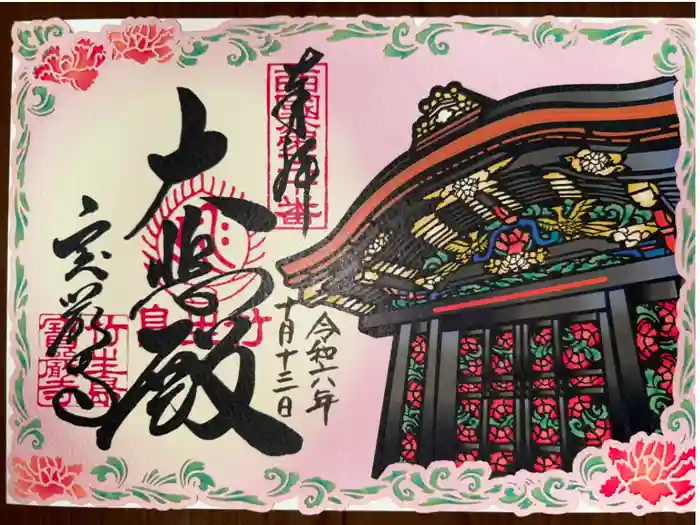 奉拝
大悲殿
令和六年
十月十三日
宝厳寺
竹生島
寶嚴寺